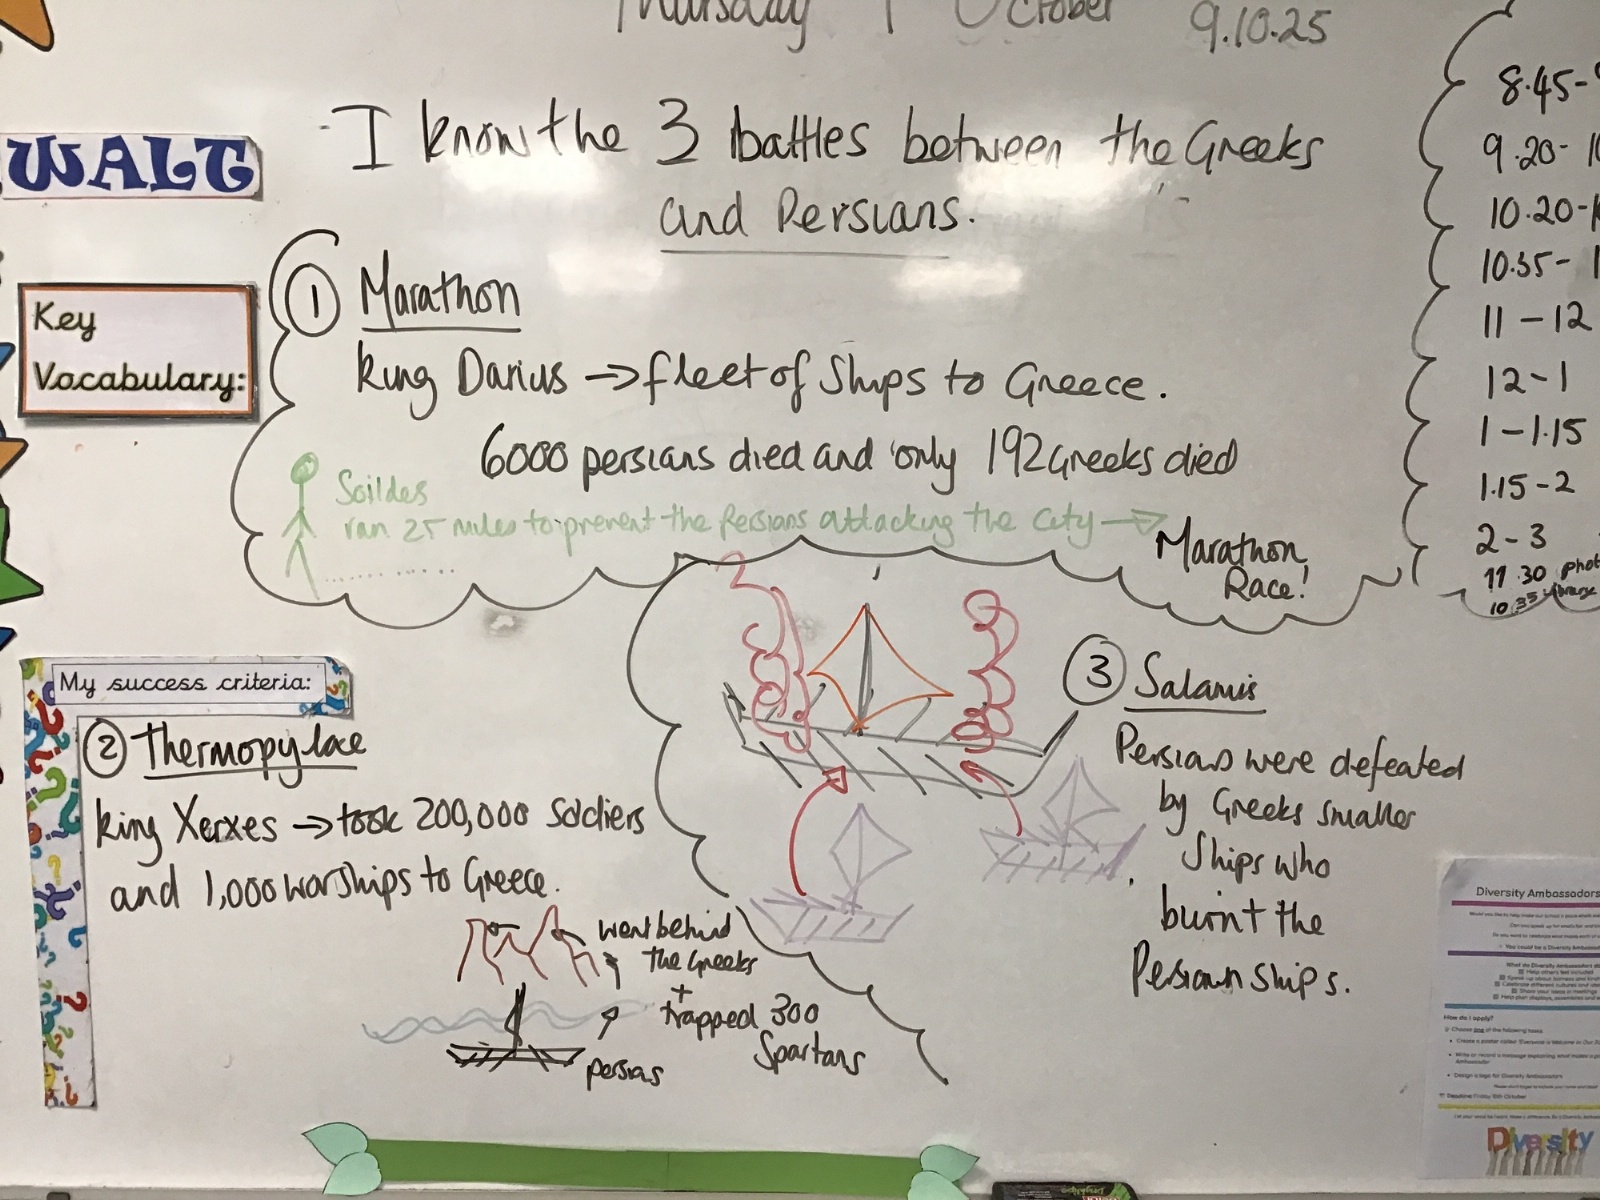 Thursday October 9.10.25
WALT
I know the 3 battles between the Greeks
and Persians.
Key
Vocabulary:
① Marathon
King Darius → fleet of Ships to Greece.
6000 persians died and only 192 Greeks died
Soildes
ran 25 miles to prevent the Persians attacking the City →
Marathon
Race!
My success criteria:
② Thermopylae
King Xerxes → took 200,000 Soldiers
and 1,000 warships to Greece.
went behind
the Greeks
+
trapped 300
Spartans
persias
③ Salamis
Persians were defeated
by Greeks smaller
Ships who
burnt the
Persian ships.
8.45-
9.20-
10.20-
10.35-
11 - 12
12 - 1
1 - 1.15
1.15 - 2
2 - 3
11.30
10.35 library
Diversity Ambassadors
How do I apply?
Diversity